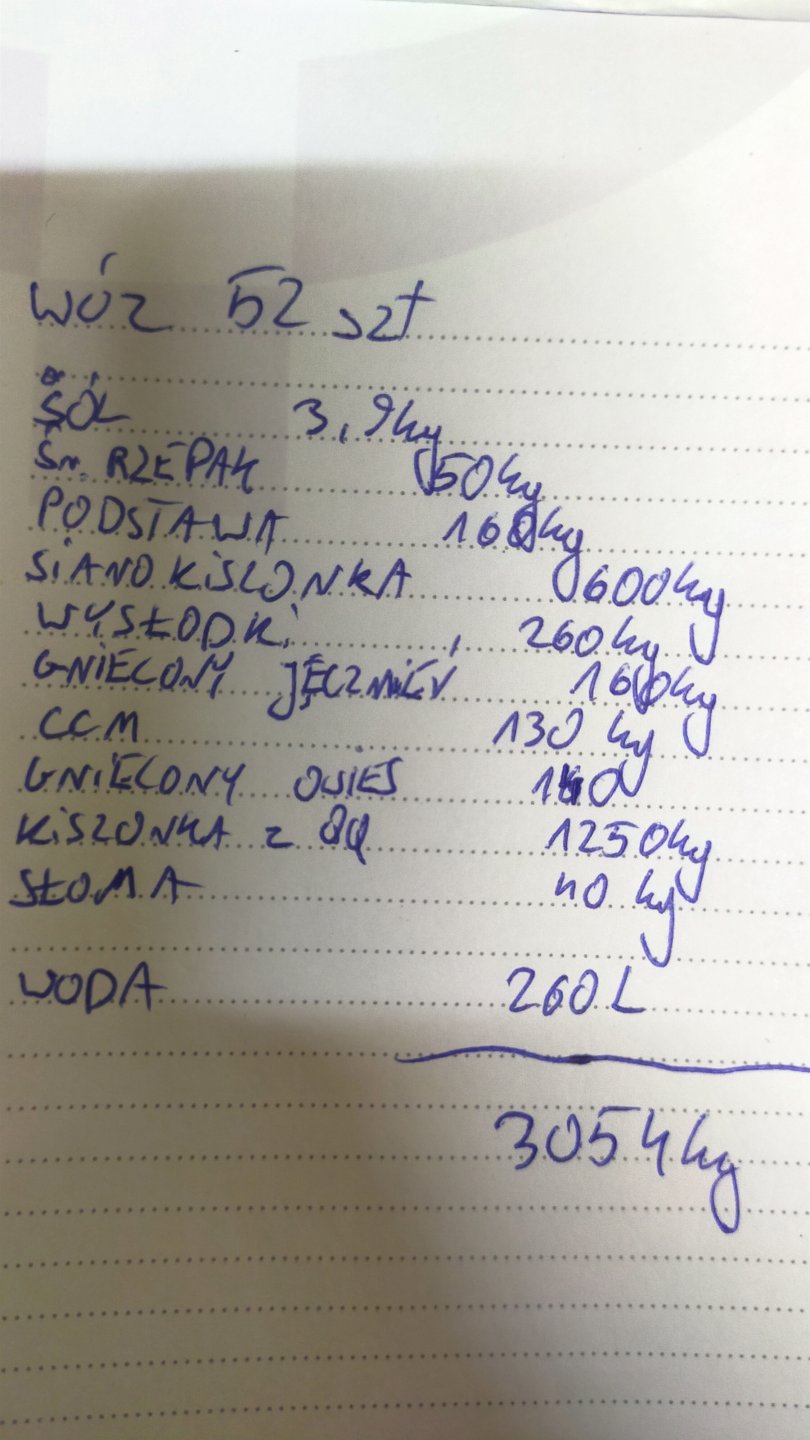 WÓZ 52 szt
SÓL 3,9kg
ŚR. RZEPAK 50kg
PODSTAWA 160kg
SIANOKISZONKA 600kg
WYSŁODKI 260kg
GNIECONY JĘCZMIEŃ 160kg
CCM 130 kg
GNIECONY OWIES 140
KISZONKA Z 1250kg
SŁOMA 40 kg
WODA 260 L
3054kg